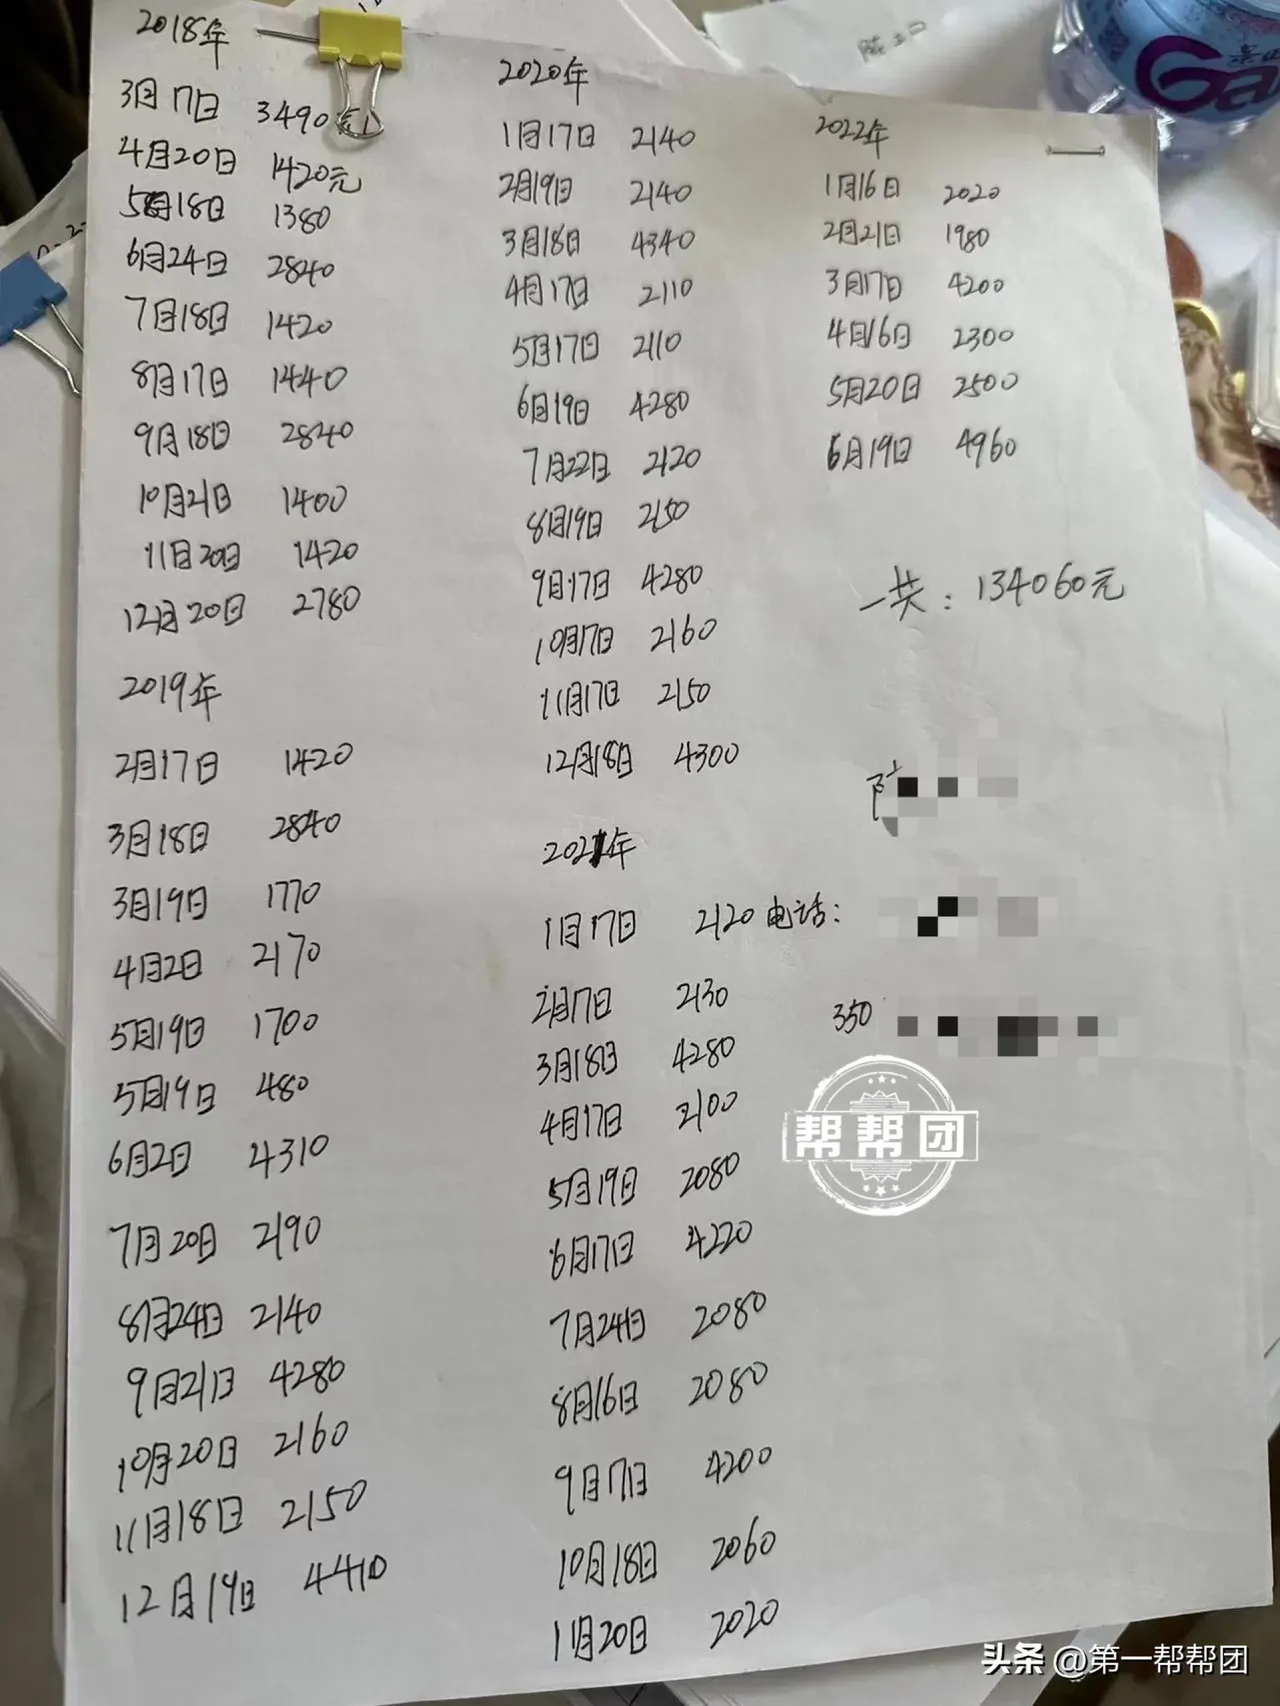 2018年
3月17日 3490元
4月20日 1420元
5月18日 1380
6月24日 2840
7月18日 1420
8月17日 1440
9月18日 2840
10月21日 1400
11月20日 1420
12月20日 2780
2019年
2月17日 1420
3月18日 2840
3月19日 1770
4月2日 2170
5月19日 1700
5月19日 480
6月2日 4310
7月20日 2190
8月24日 2140
9月21日 4280
10月20日 2160
11月18日 2150
12月19日 4410
2020年
1月17日 2140
2月19日 2140
3月18日 4340
4月17日 2110
5月17日 2110
6月19日 4280
7月22日 2120
8月19日 2150
9月17日 4280
10月17日 2160
11月17日 2150
12月18日 4300
2021年
1月17日 2120
2月17日 2130
3月18日 4280
4月17日 2100
5月19日 2080
6月17日 4220
7月24日 2080
8月16日 2080
9月17日 4200
10月18日 2060
11月20日 2020
2022年
1月16日 2020
2月21日 1980
3月17日 4200
4月16日 2300
5月20日 2500
6月19日 4960
一共：134060元
电话：
350
帮帮团
头条 @第一帮帮团